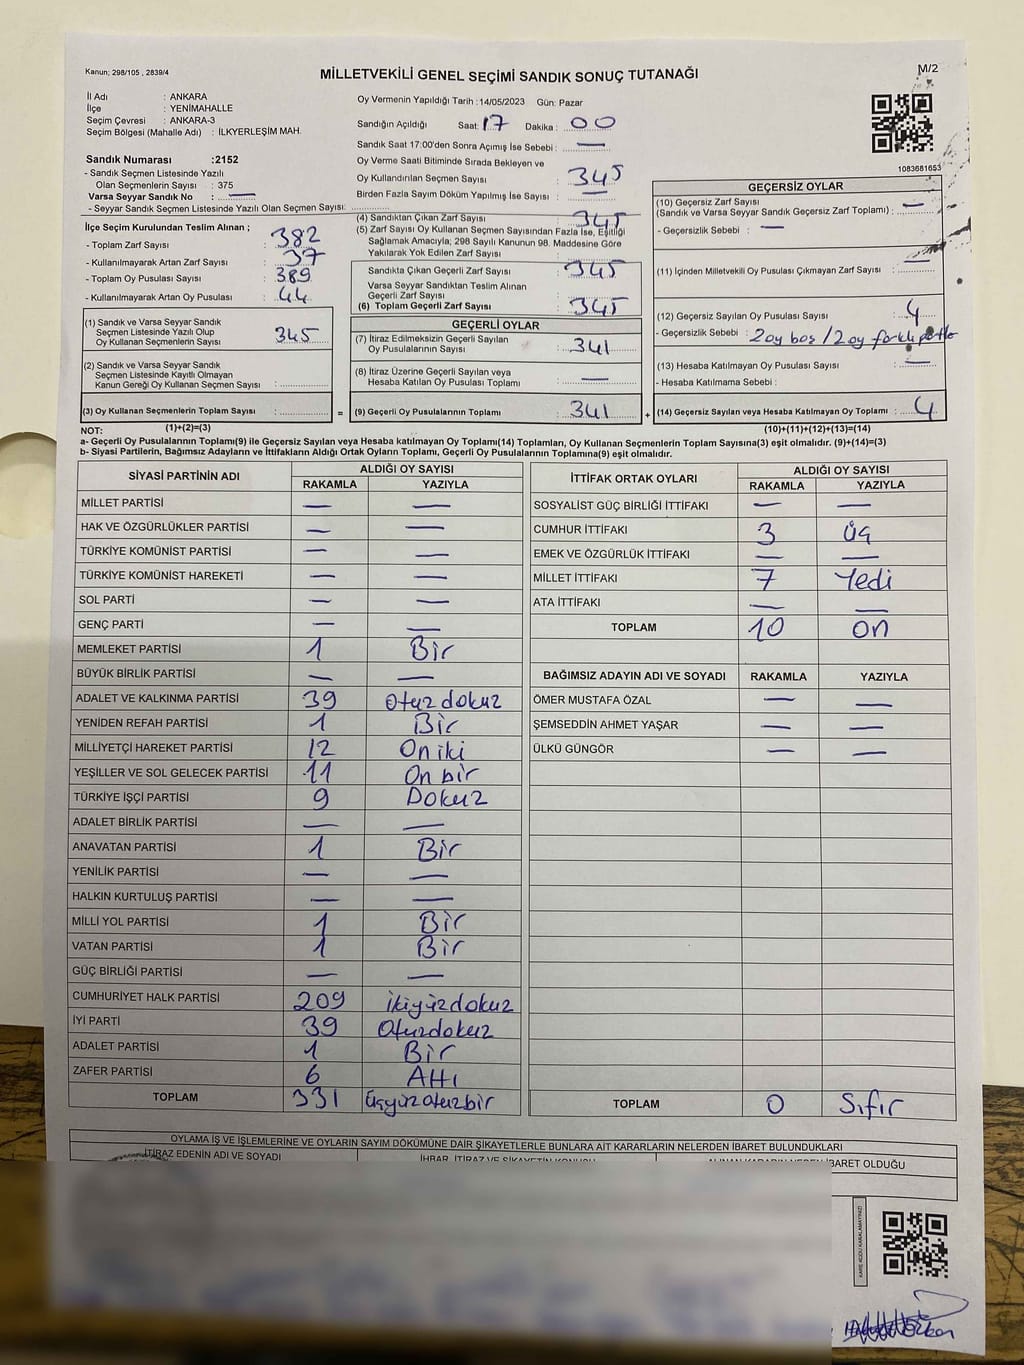 Kanun; 298/105 , 2839/4
MİLLETVEKİLİ GENEL SEÇİMİ SANDIK SONUÇ TUTANAĞI
M/2
İl Adı : ANKARA
İlçe : YENİMAHALLE
Seçim Çevresi : ANKARA-3
Seçim Bölgesi (Mahalle Adı) : İLKYERLEŞİM MAH.
Sandık Numarası :2152
- Sandık Seçmen Listesinde Yazılı
Olan Seçmenlerin Sayısı : 375
Varsa Seyyar Sandık No : —
- Seyyar Sandık Seçmen Listesinde Yazılı Olan Seçmen Sayısı:
Oy Vermenin Yapıldığı Tarih :14/05/2023 Gün: Pazar
Sandığın Açıldığı Saat: 17 Dakika : 00
Sandık Saat 17:00'den Sonra Açımış İse Sebebi : —
Oy Verme Saati Bitiminde Sırada Bekleyen ve
Oy Kullandırılan Seçmen Sayısı : 345
Birden Fazla Sayım Döküm Yapılmış İse Sayısı : —
1083681653
İlçe Seçim Kurulundan Teslim Alınan ;
- Toplam Zarf Sayısı : 382
- Kullanılmayarak Artan Zarf Sayısı : 37
- Toplam Oy Pusulası Sayısı : 389
- Kullanılmayarak Artan Oy Pusulası : 44
(1) Sandık ve Varsa Seyyar Sandık
Seçmen Listesinde Yazılı Olup
Oy Kullanan Seçmenlerin Sayısı : 345
(2) Sandık ve Varsa Seyyar Sandık
Seçmen Listesinde Kayıtlı Olmayan
Kanun Gereği Oy Kullanan Seçmen Sayısı :
(3) Oy Kullanan Seçmenlerin Toplam Sayısı :
(4) Sandıktan Çıkan Zarf Sayısı : 345
(5) Zarf Sayısı Oy Kullanan Seçmen Sayısından Fazla İse, Eşitliği
Sağlamak Amacıyla; 298 Sayılı Kanunun 98. Maddesine Göre
Yakılarak Yok Edilen Zarf Sayısı :
Sandıkta Çıkan Geçerli Zarf Sayısı : 345
Varsa Seyyar Sandıktan Teslim Alınan
Geçerli Zarf Sayısı :
(6) Toplam Geçerli Zarf Sayısı : 345
GEÇERLİ OYLAR
(7) İtiraz Edilmeksizin Geçerli Sayılan
Oy Pusulalarının Sayısı : 341
(8) İtiraz Üzerine Geçerli Sayılan veya
Hesaba Katılan Oy Pusulası Toplamı : —
= (9) Geçerli Oy Pusulalarının Toplamı : 341
GEÇERSİZ OYLAR
(10) Geçersiz Zarf Sayısı : —
(Sandık ve Varsa Seyyar Sandık Geçersiz Zarf Toplamı)
- Geçersizlik Sebebi : —
(11) İçinden Milletvekili Oy Pusulası Çıkmayan Zarf Sayısı : —
(12) Geçersiz Sayılan Oy Pusulası Sayısı : 4
- Geçersizlik Sebebi : 2oy boş /2oy farklı
(13) Hesaba Katılmayan Oy Pusulası Sayısı : —
- Hesaba Katılmama Sebebi :
+ (14) Geçersiz Sayılan veya Hesaba Katılmayan Oy Toplamı : 4
NOT: (1)+(2)=(3) (10)+(11)+(12)+(13)=(14)
a- Geçerli Oy Pusulalarının Toplamı(9) ile Geçersiz Sayılan veya Hesaba katılmayan Oy Toplamı(14) Toplamları, Oy Kullanan Seçmenlerin Toplam Sayısına(3) eşit olmalıdır. (9)+(14)=(3)
b- Siyasi Partilerin, Bağımsız Adayların ve İttifakların Aldığı Ortak Oyların Toplamı, Geçerli Oy Pusulalarının Toplamına(9) eşit olmalıdır.
SİYASİ PARTİNİN ADI ALDIĞI OY SAYISI
RAKAMLA YAZIYLA
MİLLET PARTİSİ — —
HAK VE ÖZGÜRLÜKLER PARTİSİ — —
TÜRKİYE KOMÜNİST PARTİSİ — —
TÜRKİYE KOMÜNİST HAREKETİ — —
SOL PARTİ — —
GENÇ PARTİ — —
MEMLEKET PARTİSİ 1 Bir
BÜYÜK BİRLİK PARTİSİ — —
ADALET VE KALKINMA PARTİSİ 39 Otuz dokuz
YENİDEN REFAH PARTİSİ 1 Bir
MİLLİYETÇİ HAREKET PARTİSİ 12 On iki
YEŞİLLER VE SOL GELECEK PARTİSİ 11 On bir
TÜRKİYE İŞÇİ PARTİSİ 9 Dokuz
ADALET BİRLİK PARTİSİ — —
ANAVATAN PARTİSİ 1 Bir
YENİLİK PARTİSİ — —
HALKIN KURTULUŞ PARTİSİ — —
MİLLİ YOL PARTİSİ 1 Bir
VATAN PARTİSİ 1 Bir
GÜÇ BİRLİĞİ PARTİSİ — —
CUMHURİYET HALK PARTİSİ 209 ikiyüzdokuz
İYİ PARTİ 39 Otuzdokuz
ADALET PARTİSİ 1 Bir
ZAFER PARTİSİ 6 Altı
TOPLAM 331 üçyüzotuzbir
İTTİFAK ORTAK OYLARI ALDIĞI OY SAYISI
RAKAMLA YAZIYLA
SOSYALİST GÜÇ BİRLİĞİ İTTİFAKI — —
CUMHUR İTTİFAKI 3 Üç
EMEK VE ÖZGÜRLÜK İTTİFAKI — —
MİLLET İTTİFAKI 7 Yedi
ATA İTTİFAKI — —
TOPLAM 10 on
BAĞIMSIZ ADAYIN ADI VE SOYADI RAKAMLA YAZIYLA
ÖMER MUSTAFA ÖZAL — —
ŞEMSEDDİN AHMET YAŞAR — —
ÜLKÜ GÜNGÖR — —
TOPLAM 0 Sıfır
OYLAMA İŞ VE İŞLEMLERİNE VE OYLARIN SAYIM DÖKÜMÜNE DAİR ŞİKAYETLERLE BUNLARA AİT KARARLARIN NELERDEN İBARET BULUNDUKLARI
İTİRAZ EDENİN ADI VE SOYADI İHBAR, İTİRAZ VE ŞİKAYETİN KONUSU ALINAN KARARIN NEDEN İBARET OLDUĞU